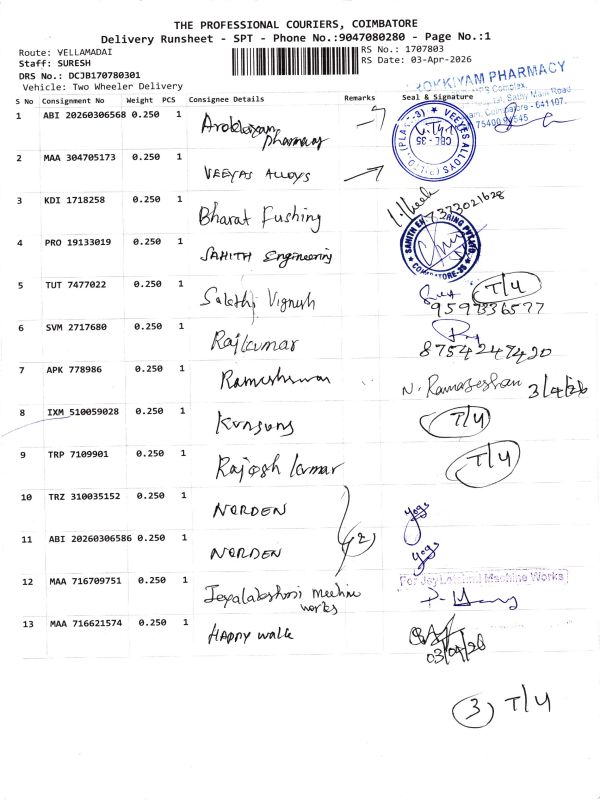 THE PROFESSIONAL COURIERS, COIMBATORE
Delivery Runsheet - SPT - Phone No.:9047080280 - Page No.:1
Route: VELLAMADAI
RS No.: 1707803
Staff: SURESH
RS Date: 03-Apr-2026
DRS No.: DCJB170780301
Vehicle: Two Wheeler Delivery
S No Consignment No Weight PCS Consignee Details Remarks Seal & Signature
ROKKIYAM PHARMACY
Complex,
Sathy Main Road
Coimbatore - 641107.
1 ABI 20260306568 0.250 1 Arokkiyam pharmacy
VEEYES ALLOYS (P) LTD.
CBE - 35
2 MAA 304705173 0.250 1 VEEYAS ALLOYS
3 KDI 1718258 0.250 1 Bharat Fushing
7373021628
4 PRO 19133019 0.250 1 SAHITH Engineering
COIMBATORE-35
5 TUT 7477022 0.250 1 Sakthi Vignesh T/4
9597336577
6 SVM 2717680 0.250 1 Rajkumar
8754247420
7 APK 778986 0.250 1 Rameshwar N. Ramaseshan 3/4/26
8 IXM 510059028 0.250 1 T/4
9 TRP 7109901 0.250 1 Rajesh kumar T/4
10 TRZ 310035152 0.250 1 NORDEN yogs
(2)
11 ABI 20260306586 0.250 1 NORDEN yogs
12 MAA 716709751 0.250 1 Jeyalakshmi machine works
For JayLakshmi Machine Works
13 MAA 716621574 0.250 1 HAPPY walk
03/04/26
3 T/4